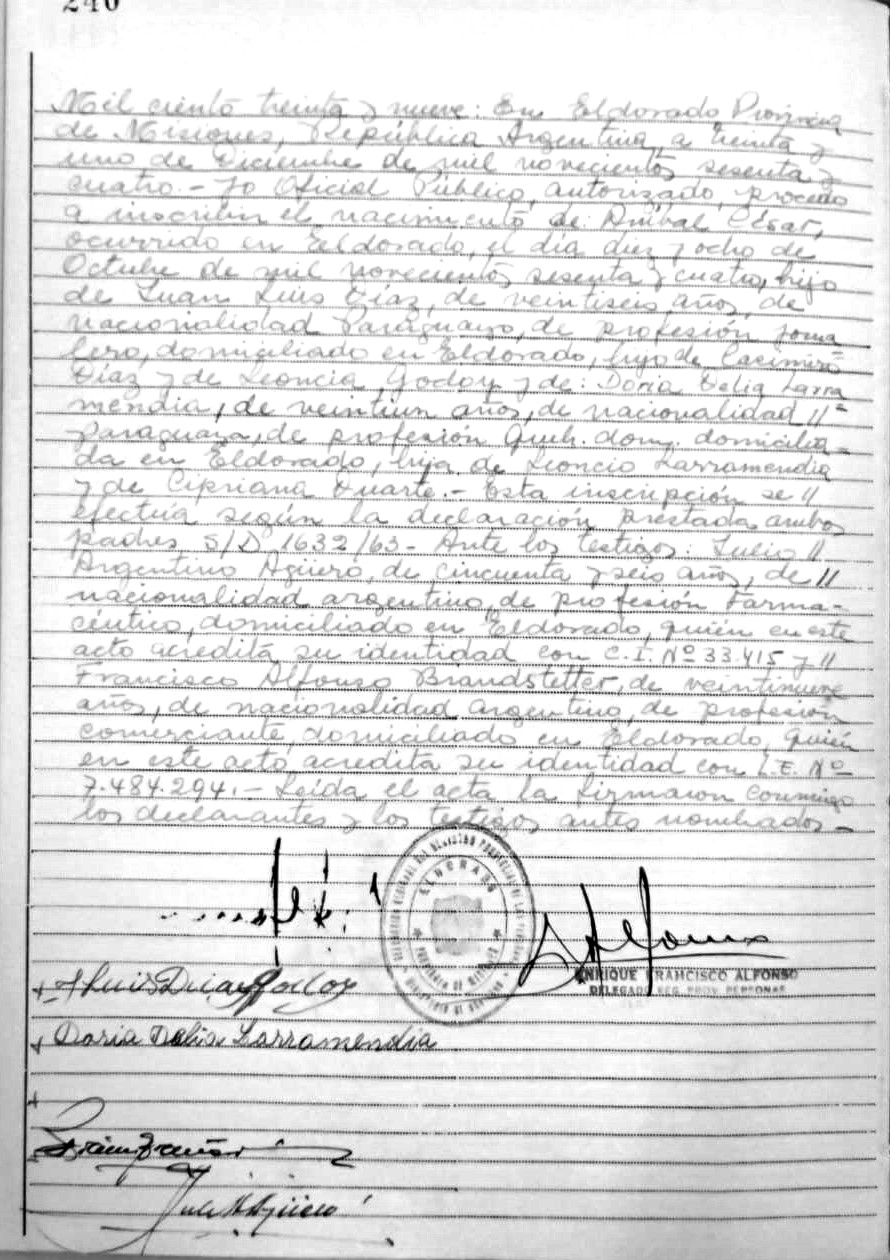 240
Mil ciento treinta y nueve: En Eldorado Provincia
de Misiones, República Argentina, a treinta y
uno de Diciembre de mil novecientos sesenta y
cuatro.- Yo Oficial Público, autorizado, procedo
a inscribir el nacimiento de: Anibal César,
ocurrido en Eldorado, el día diez y ocho de
Octubre de mil novecientos sesenta y cuatro, hijo
de Juan Luis Díaz, de veintiseis años, de
nacionalidad Paraguayo, de profesión Jorna
lero, domiciliado en Eldorado, hijo de Casimiro
Díaz y de Leoncia Godoy y de: Doria Delia Larra
mendia, de veintiun años, de nacionalidad //-
Paraguaya, de profesión Queh. dom. domicilia-
da en Eldorado, hija de Leoncio Larramendia
y de Cipriana Duarte.- Esta inscripción se //
efectúa según la declaración prestada ambos
padres S/D 1632/63- Ante los testigos: Julio //
Argentino Agüero, de cincuenta y seis años, de //
nacionalidad argentino, de profesión Farma-
céutico, domiciliado en Eldorado, quién en este
acto acredita su identidad con C.I. Nº 33.415 y //
Francisco Alfonso Brandstetter, de veintinueve
años, de nacionalidad Argentino, de profesión
comerciante, domiciliado en Eldorado, quién
en este acto acredita su identidad con L.E. Nº
7.484.294.- Leída el acta la firmaron conmigo
los declarantes y los testigos antes nombrados.-
ELDORADO
PROVINCIA DE MISIONES
ENRIQUE FRANCISCO ALFONSO
DELEGADO REG. PROV. PERSONAS
Luis Diaz Godoy
Doria Delia Larramendia